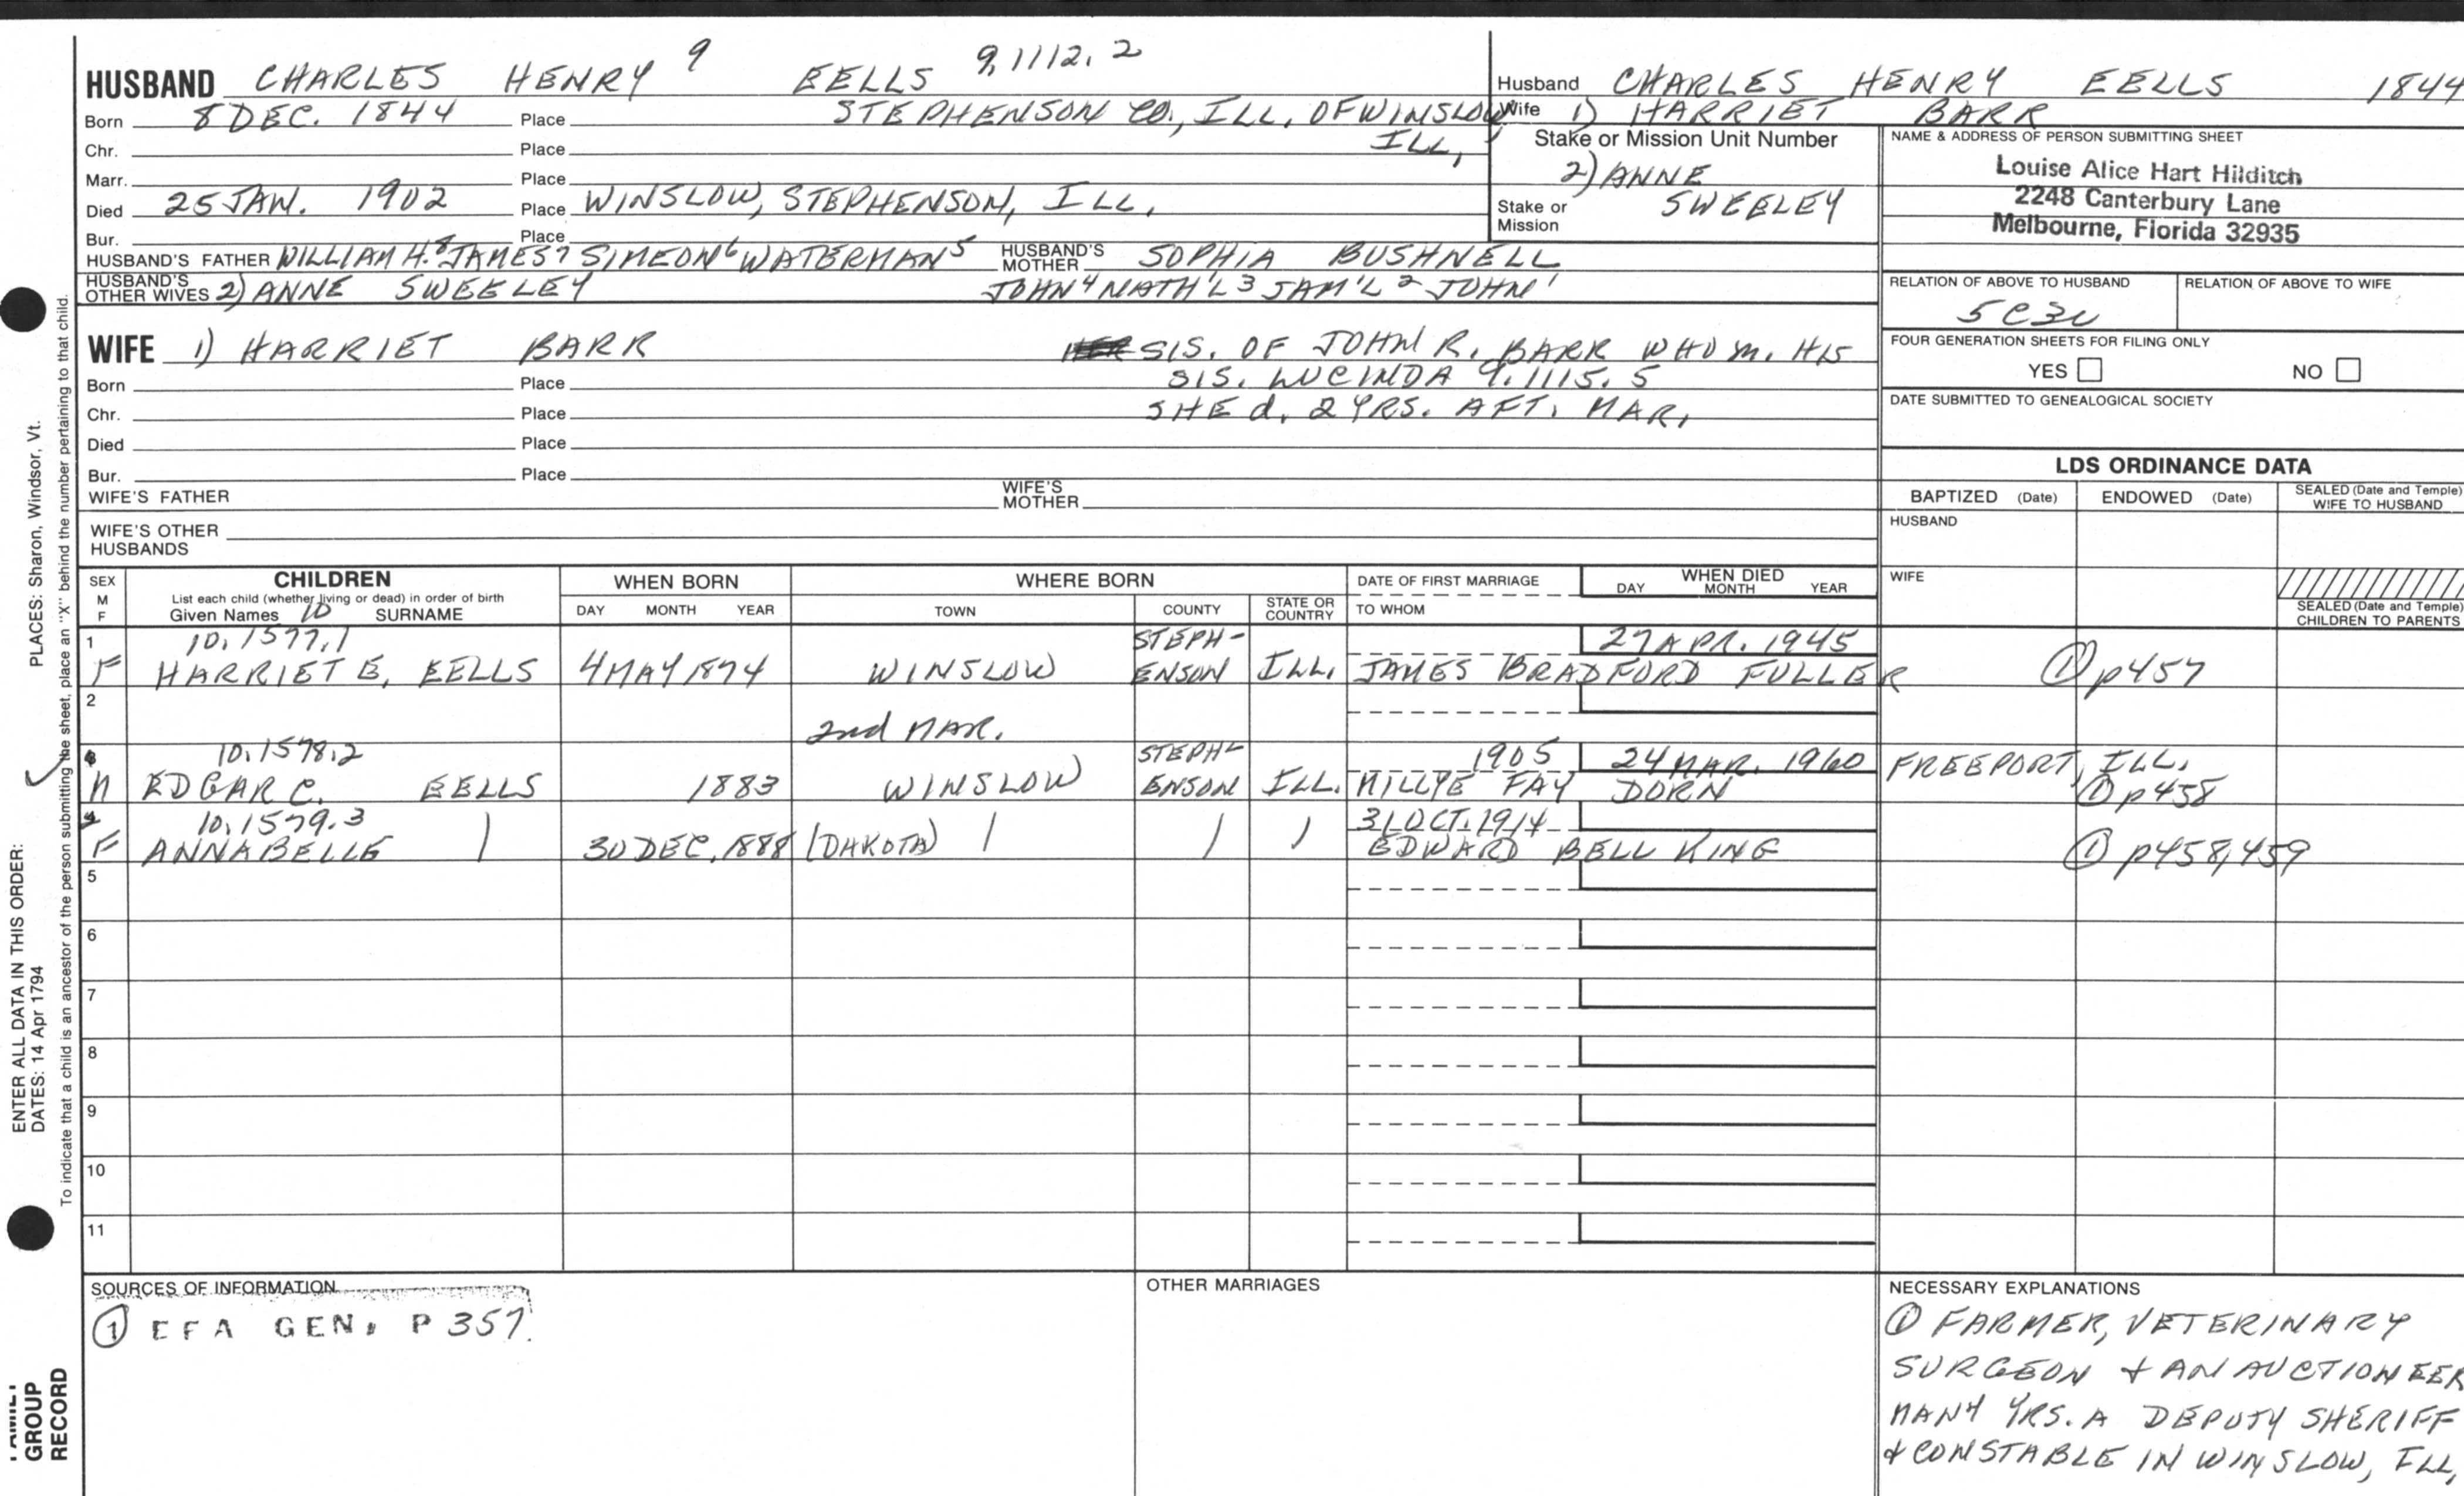 HUSBAND CHARLES HENRY 9 EELLS 9,1112.2
Born 8 DEC. 1844 Place STEPHENSON CO., ILL. OF WINSLOW
Chr. Place ILL,
Marr. Place
Died 25 JAN. 1902 Place WINSLOW, STEPHENSON, ILL.
Bur. Place
HUSBAND'S FATHER WILLIAM H.8 JAMES7 SIMEON6 WATERMAN5 HUSBAND'S MOTHER SOPHIA BUSHNELL
HUSBAND'S OTHER WIVES 2) ANNE SWEELEY JOHN4 NATH'L3 SAM'L2 JOHN1
WIFE 1) HARRIET BARR SIS. OF JOHN R. BARR WHO M. HIS
Born Place SIS. LUCINDA 9.1115.5
Chr. Place SHE d. 2 YRS. AFT. MAR.
Died Place
Bur. Place
WIFE'S FATHER WIFE'S MOTHER
WIFE'S OTHER HUSBANDS
Husband CHARLES HENRY EELLS 1844
Wife 1) HARRIET BARR
Stake or Mission Unit Number
2) ANNE
SWEELEY
Stake or Mission
NAME & ADDRESS OF PERSON SUBMITTING SHEET
Louise Alice Hart Hilditch
2248 Canterbury Lane
Melbourne, Florida 32935
RELATION OF ABOVE TO HUSBAND RELATION OF ABOVE TO WIFE
5C3U
FOUR GENERATION SHEETS FOR FILING ONLY
YES NO
DATE SUBMITTED TO GENEALOGICAL SOCIETY
LDS ORDINANCE DATA
BAPTIZED (Date) ENDOWED (Date) SEALED (Date and Temple) WIFE TO HUSBAND
HUSBAND
WIFE
SEALED (Date and Temple) CHILDREN TO PARENTS
SEX M F CHILDREN WHEN BORN WHERE BORN DATE OF FIRST MARRIAGE WHEN DIED
List each child (whether living or dead) in order of birth DAY MONTH YEAR
Given Names 10 SURNAME DAY MONTH YEAR TOWN COUNTY STATE OR COUNTRY TO WHOM
1 10.1577.1 STEPH- 27 APR. 1945
F HARRIET E. EELLS 4 MAY 1874 WINSLOW ENSON ILL. JAMES BRADFORD FULLER ① p457
2
2nd MAR.
10.1578.2 STEPH- 1905 24 MAR. 1960 FREEPORT, ILL.
M EDGAR C. EELLS 1883 WINSLOW ENSON ILL. MILLYE FAY DORN ① p458
10.1579.3 31 OCT. 1914
F ANNABELLE 30 DEC. 1888 (DAKOTA) EDWARD BELL KING ① p458,459
5
6
7
8
9
10
11
SOURCES OF INFORMATION
① EFA GEN. P 357.
OTHER MARRIAGES
NECESSARY EXPLANATIONS
① FARMER, VETERINARY
SURGEON & AN AUCTIONEER
MANY YRS. A DEPUTY SHERIFF
& CONSTABLE IN WINSLOW, ILL,
PLACES: Sharon, Windsor, Vt.
ENTER ALL DATA IN THIS ORDER:
DATES: 14 Apr 1794
To indicate that a child is an ancestor of the person submitting the sheet, place an "X" behind the number pertaining to that child.
GROUP
RECORD